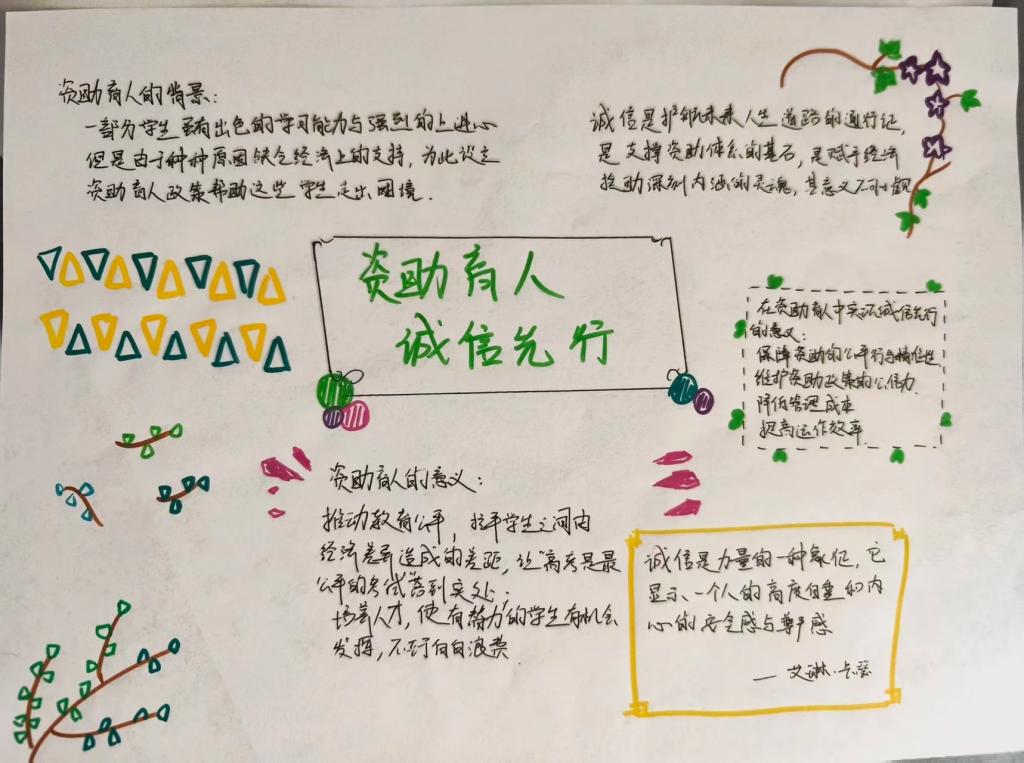 资助育人的背景：
一部分学生虽有出色的学习能力与强烈的上进心
但是由于种种原因缺乏经济上的支持，为此设立
资助育人政策帮助这些学生走出困境．
诚信是护航未来人生道路的通行证，
是支撑资助体系的基石，是赋予经济
援助深刻内涵的灵魂，其意义不可小觑
资助育人
诚信先行
在资助育人中实际诚信先行
的意义：
保障资助的公平行与精准性
维护资助政策的公信力
降低管理成本
提高运作效率
资助育人的意义：
推动教育公平，拉平学生之间由
经济差异造成的差距，让“高考是最
公平的考试”落到实处．
培养人才，使有努力的学生有机会
发挥，不予白白浪费
诚信是力量的一种象征，它
显示一个人的高度自重和内
心的安全感与尊严感
— 艾琳·卡瑟